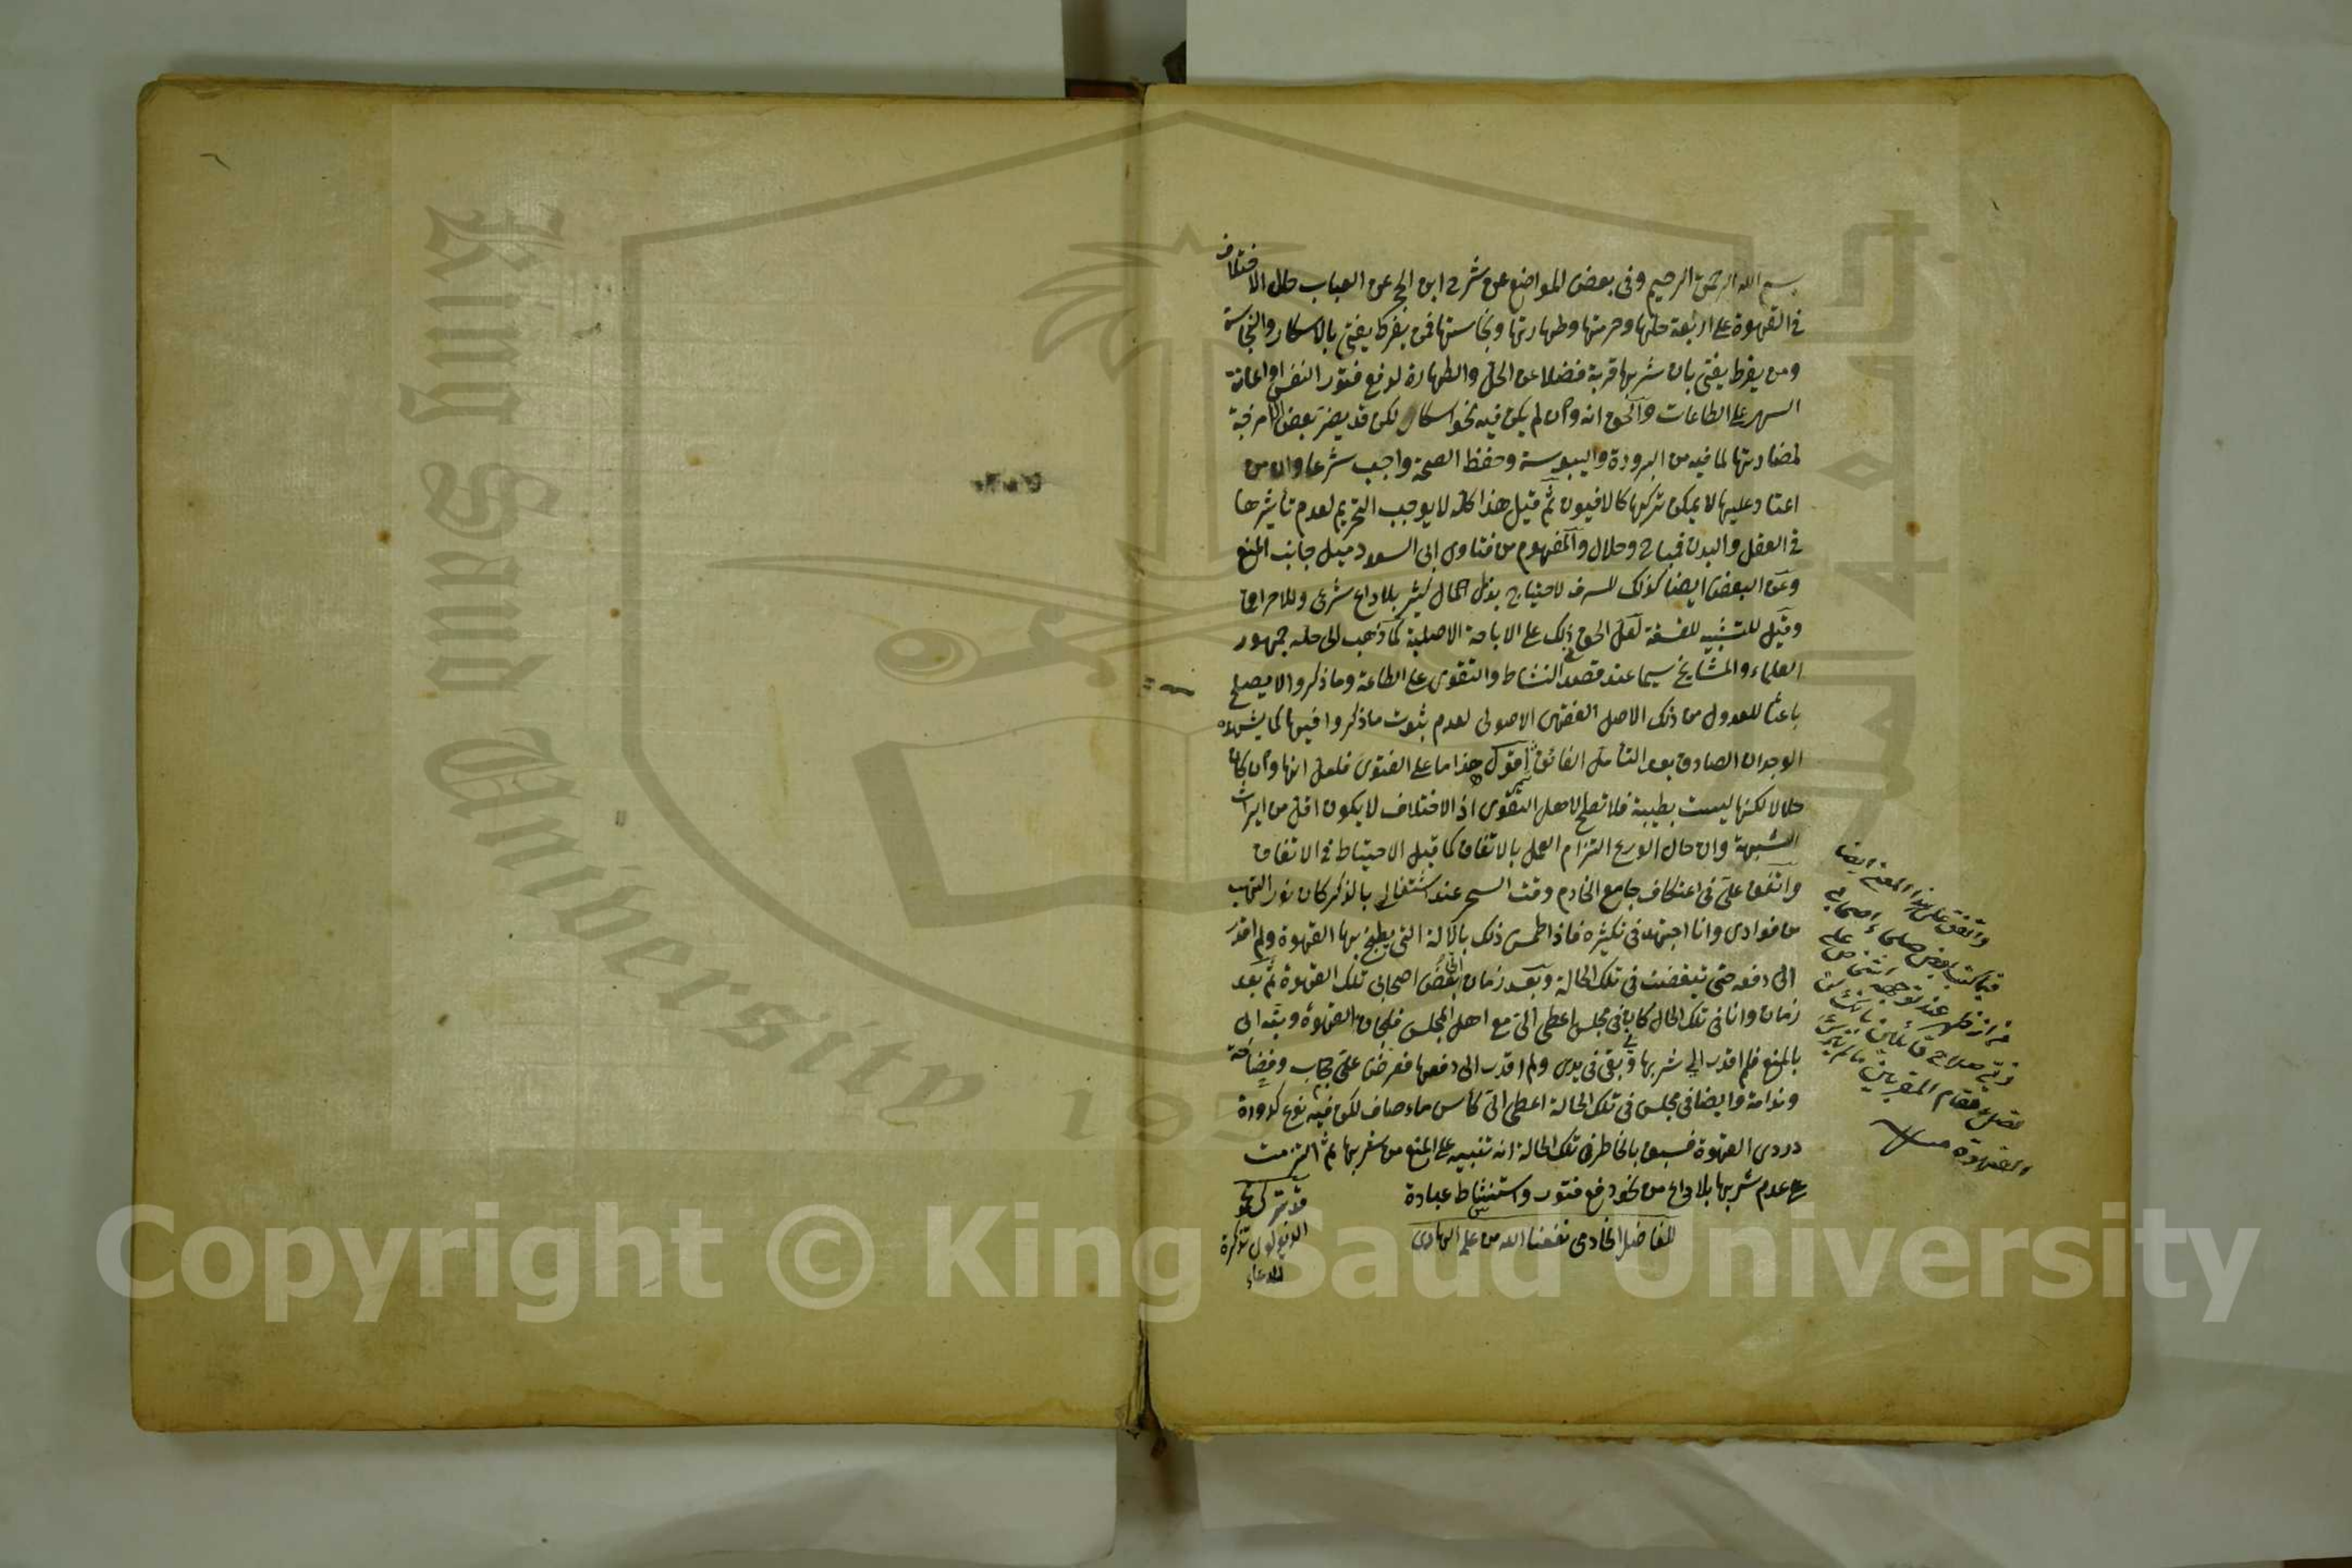 بسم الله الرحمن الرحيم وفى بعض المواضع عن شرح ابن الحجر عن العباب حال الاختلاف
فى القهوة على اربعة حلتها وحرمتها وطهارتها ونجاستها فمن يفرط يفتى بالاسكار والنجاسة
ومن يفرط يفتى بان شربها قربة فضلا عن الحل والطهارة لدفع فتور النفس او اعانة
السهر على الطاعات والحق انه وان لم يكن فيه نحو اسكار لكن قد يضر بعض الامزجة
لمضادتها لما فيه من البرودة واليبوسة وحفظ الصحة واجب شرعا وان من
اعتاد عليها لا يمكن تركها كالافيون ثم قيل هذا كله لا يوجب التحريم لعدم تأثيرها
فى العقل والبدن فمباح وحلال والمفهوم من فتاوى ابى السعود ميل جانب المنع
وعن البعض ايضا كذلك للسرف لاحتياج بذل المال كثير بلا داع شرعى وللاحراق
وقيل للتشبيه للفسقة لعل الحق فى ذلك على الاباحة الاصلية كما ذهب الى حله جمهور
العلماء والمشايخ سيما عند قصد النشاط والتقوى على الطاعة وما ذكروا لا يصلح
باعثا للعدول من ذلك الاصل الفقهى الاصولى لعدم ثبوت ما ذكروا فيها كما يشهده
الوجدان الصادق بعد التأمل الفائق اقول هذا ما على الفتوى فلعل انها وان كان
حلالا لكنها ليست بطيبة فلا تصلح لاهل التقوى اذ الاختلاف لا يكون اقل من ايراث
الشبهة وان حال الورع التزام العمل بالاتفاق كما قيل الاحتياط فى الاتفاق
واتفق على فى اعتكاف جامع الخادم وقت السحر عند اشتغالى بالذكر كان نور التهب
من فوادى وانا اجتهد فى تكثيره فاذا اطمس ذلك بالآلة التى يطبخ بها القهوة ولم اقدر
الى دفعه حتى تبغضت فى تلك الحالة وبعد زمان بعض اصحابى تلك القهوة ثم بعد
زمان وانا فى تلك الحال كان فى مجلس اعطى الى مع اهل المجلس فنجان القهوة ونبه الى
بالمنع فلم اقدر الى شربها وبقى فى يدى ولم اقدر الى دفعها فعرض على حجاب وفضاحة
وندامة وايضا فى مجلس فى تلك الحالة اعطى الى كأس ماء صاف لكن فيه نوع كدورة
دردى القهوة فسبق بالخاطر فى تلك الحالة انه تنبيه على المنع من شربها ثم التزمت
على عدم شربها بلا داع من نحو دفع فتور واستنشاط عبادة
للفاضل الخادمى نفعنا الله من علمه الهادى
الدنغولى تذكرة
للدعاء
واتفق على هذا المعنى ايضا
بعض صلحاء اصحابى
عند توجه
مقام المقربين
والقهوة منه